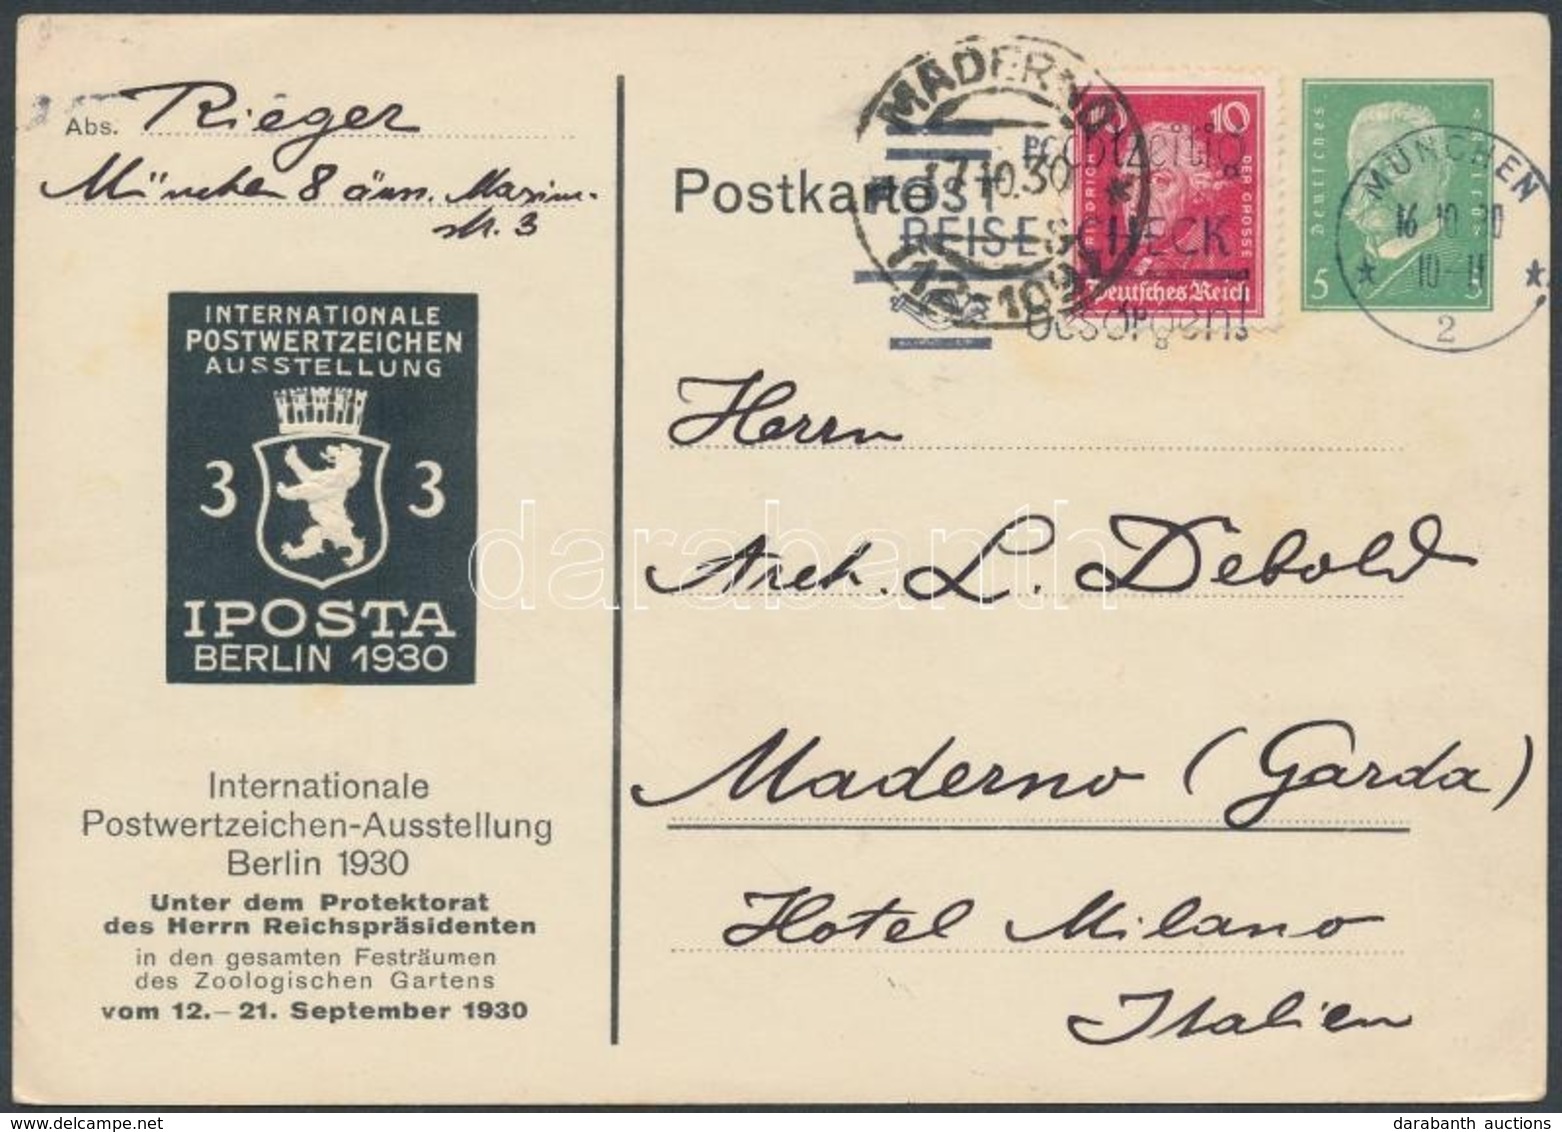 Abs. Rieger
München 8 äuss. Maxim.-
str. 3
INTERNATIONALE
POSTWERTZEICHEN
AUSSTELLUNG
3 3
IPOSTA
BERLIN 1930
Internationale
Postwertzeichen-Ausstellung
Berlin 1930
Unter dem Protektorat
des Herrn Reichspräsidenten
in den gesamten Festräumen
des Zoologischen Gartens
vom 12.–21. September 1930
Postkarte
MADERNO
17.10.30
Rechtzeitig
Post
REISESCHECK
besorgen!
10 10
FRIEDRICH DER GROSSE
Deutsches Reich
Deutsches Reich
5 5
MÜNCHEN
16 10 30
10-11
2
Herrn
Arch. L. Debold
Maderno (Garda)
Hotel Milano
Italien
darabanth
darabanth auctions